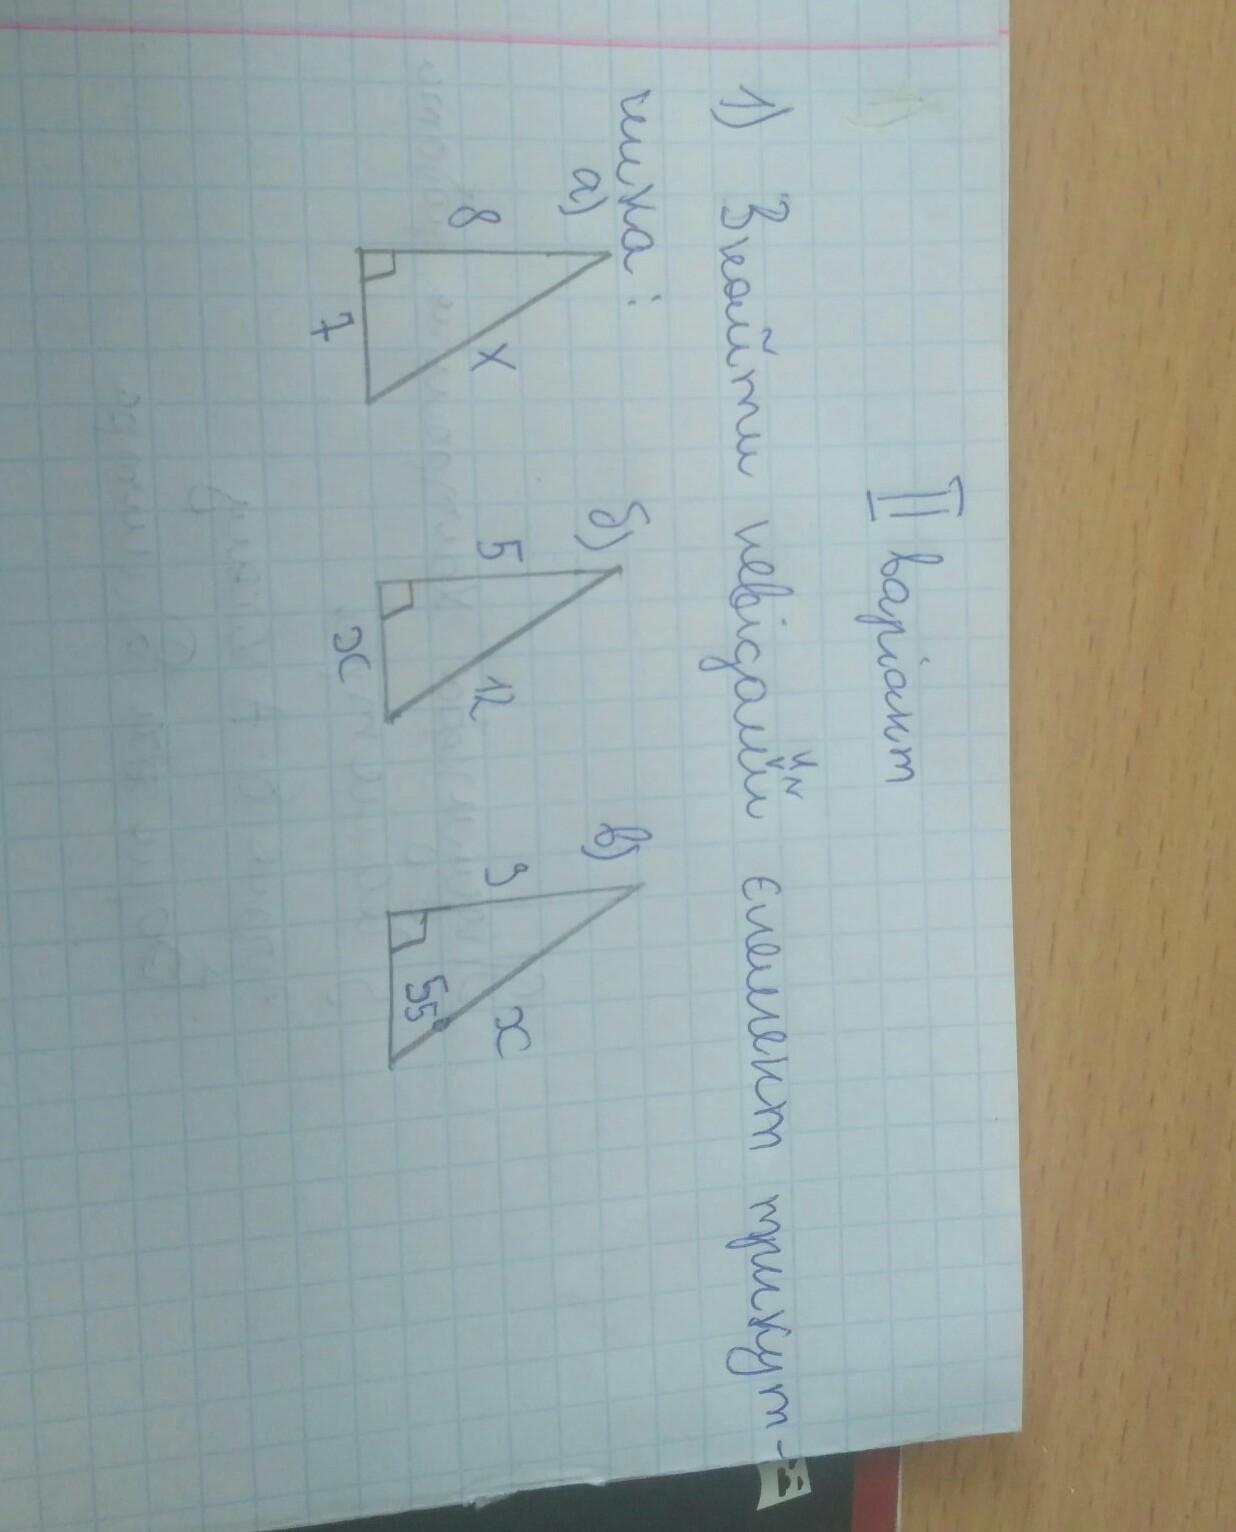 II варіант
1) Знайти невідамйй елемент трикут-
ника:
а) б) в)
8 x 5 12 9 x
7 x 55°